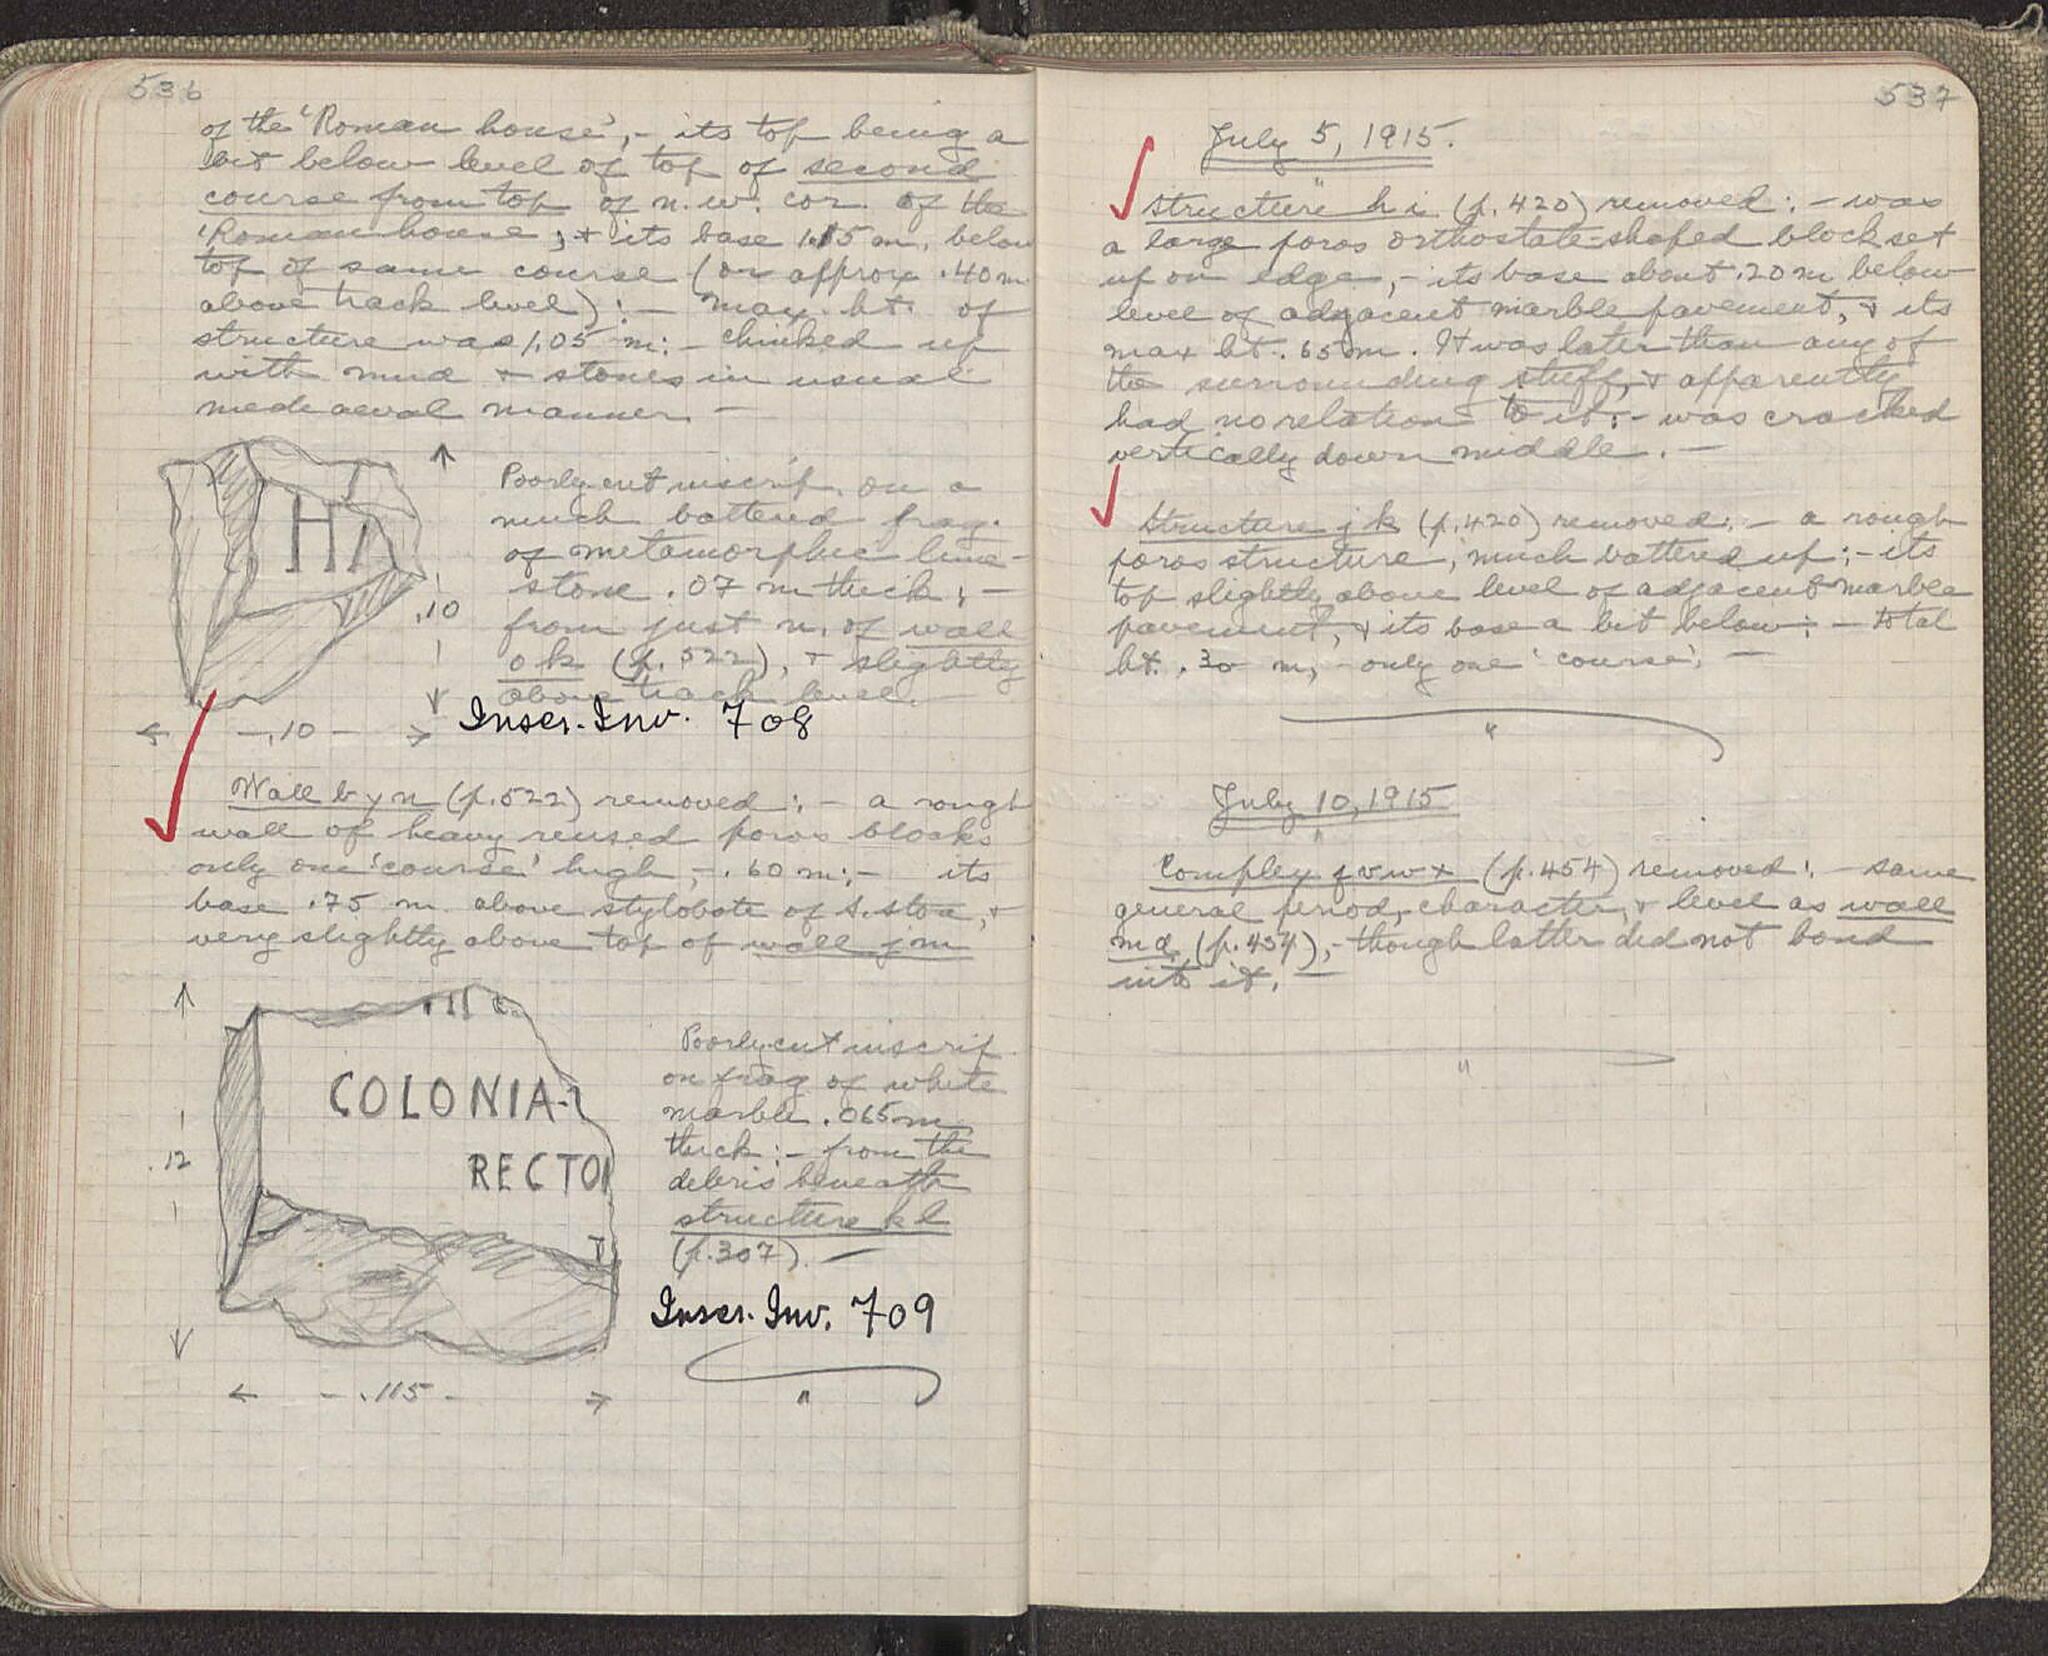 536
of the 'Roman house', - its top being a
bit below level of top of second
course from top of n.w. cor. of the
'Roman house', & its base 1.15 m. below
top of same course (or approx .40 m
above track level) : - max. ht. of
structure was 1.05 m: - chinked up
with mud & stones in usual
mediaeval manner. -
HA
.10
- .10 -
Poorly cut inscrip. on a
much battered frag.
of metamorphic lime-
stone .07 m thick ; -
from just n. of wall
ok (p. 522), & slightly
above track level.
Inscr. Inv. 708
Wall byn (p.522) removed : - a rough
wall of heavy reused poros blocks
only one 'course' high, - .60 m; - its
base .75 m above stylobate of s. stoa, &
very slightly above top of wall jm
COLONIA-
RECTO
.12
- .115 -
Poorly cut inscrip.
on frag of white
marble .065 m
thick : - from the
debris beneath
structure kl
(p.307). -
Inscr. Inv. 709
"
537
July 5, 1915.
Structure hi (p. 420) removed : - was
a large poros orthostate-shaped block set
up on edge, - its base about .20 m below
level of adjacent marble pavement, & its
max ht. .65 m. It was later than any of
the surrounding stuff, & apparently
had no relation to it; - was cracked
vertically down middle. -
Structure jk (p.420) removed; - a rough
poros structure, much battered up; - its
top slightly above level of adjacent marble
pavement, & its base a bit below: - total
ht. .30 m, - only one 'course'. -
"
July 10, 1915
Complex fvwx (p.454) removed : - same
general period, character, & level as wall
md (p.454), - though latter did not bond
into it. -
"